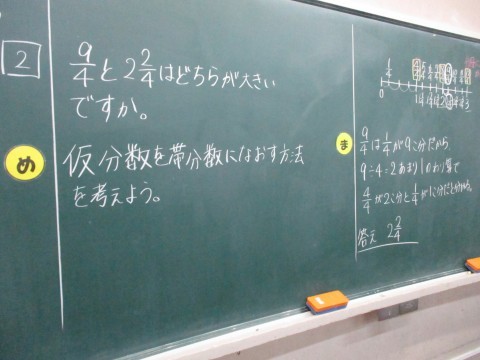 2
9/4と2 2/4はどちらが大きい
ですか。
め
仮分数を帯分数になおす方法
を考えよう。
0
ま
9/4は1/4が9こ分だから
9÷4=2あまり1のわり算で
4/4が2こ分と1/4が1こ分だと分かる。
答え 2 2/4